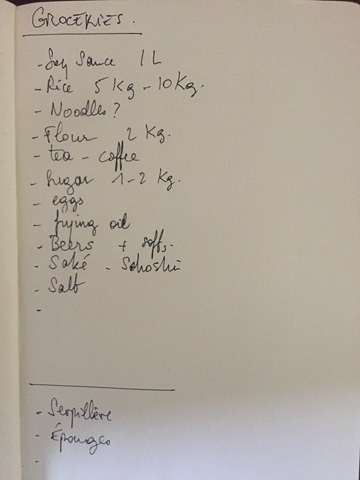 GROCERIES.
- Soy Sauce 1 L
- Rice 5 Kg - 10 Kg.
- Noodles?
- Flour 2 Kg.
- tea - coffee
- Sugar 1-2 Kg.
- eggs
- frying oil
- Beers + softs.
- Saké -
- Salt
-
- Serpillère
- Éponges
-